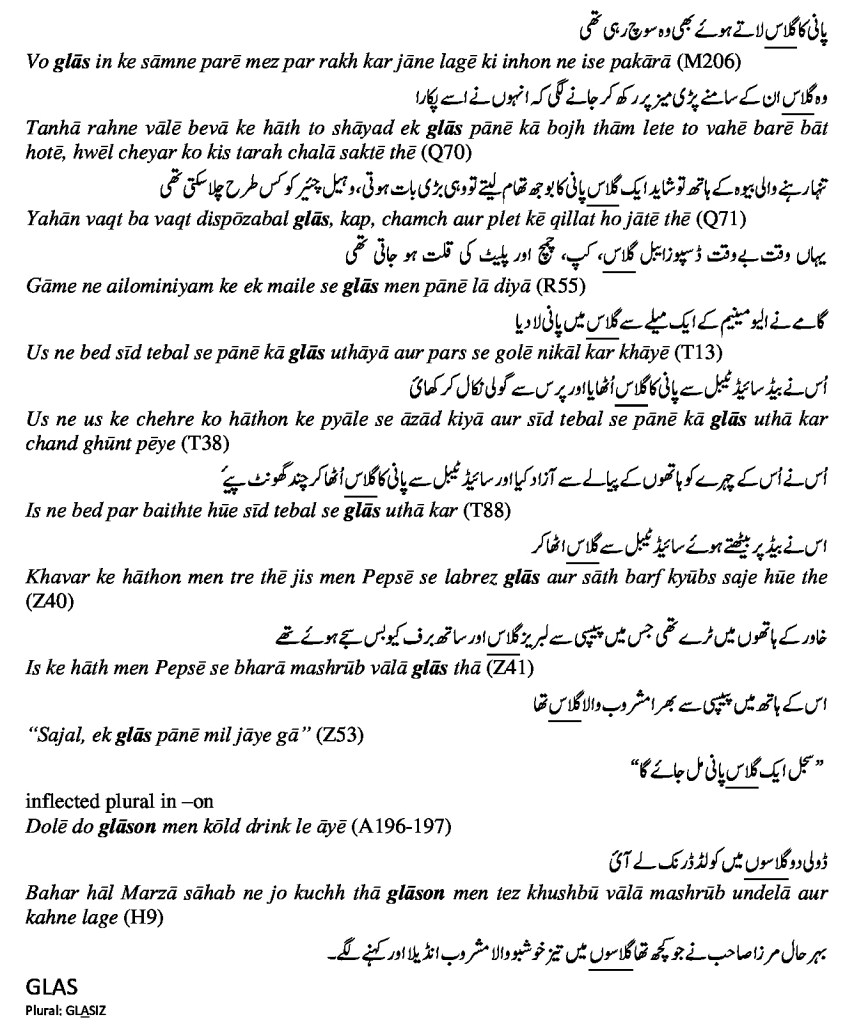 پانی کا گلاس لاتے ہوئے بھی وہ سوچ رہی تھی
Vo glās in ke sāmne parē mez par rakh kar jāne lagē ki inhon ne ise pakārā (M206)
وہ گلاس ان کے سامنے پڑی میز پر رکھ کر جانے لگی کہ انہوں نے اسے پکارا
Tanhā rahne vālē bevā ke hāth to shāyad ek glās pānē kā bojh thām lete to vahē barē bāt
hotē, hwēl cheyar ko kis tarah chalā saktē thē (Q70)
تنہا رہنے والی بیوہ کے ہاتھ تو شاید ایک گلاس پانی کا بوجھ تھام لیتے تو وہی بڑی بات ہوتی، وہیل چئیر کو کس طرح چلا سکتی تھی
Yahān vaqt ba vaqt dispōzabal glās, kap, chamch aur plet kē qillat ho jātē thē (Q71)
یہاں وقت بے وقت ڈسپوزایبل گلاس، کپ، چمچ اور پلیٹ کی قلت ہو جاتی تھی
Gāme ne ailominiyam ke ek maile se glās men pānē lā diyā (R55)
گامے نے الیومینیم کے ایک میلے سے گلاس میں پانی لا دیا
Us ne bed sīd tebal se pānē kā glās uthāyā aur pars se golē nikāl kar khāyē (T13)
اُس نے بیڈ سائیڈ ٹیبل سے پانی کا گلاس اُٹھایا اور پرس سے گولی نکال کر کھائی
Us ne us ke chehre ko hāthon ke pyāle se āzād kiyā aur sīd tebal se pānē kā glās uthā kar
chand ghūnt pēye (T38)
اُس نے اُس کے چہرے کو ہاتھوں کے پیالے سے آزاد کیا اور سائیڈ ٹیبل سے پانی کا گلاس اُٹھا کر چند گھونٹ پیئے
Is ne bed par baithte hūe sīd tebal se glās uthā kar (T88)
اس نے بیڈ پر بیٹھتے ہوئے سائیڈ ٹیبل سے گلاس اٹھا کر
Khavar ke hāthon men tre thē jis men Pepsē se labrez glās aur sāth barf kyūbs saje hūe the
(Z40)
خاور کے ہاتھوں میں ٹرے تھی جس میں پیپسی سے لبریز گلاس اور ساتھ برف کیوبس سجے ہوئے تھے
Is ke hāth men Pepsē se bharā mashrūb vālā glās thā (Z41)
اس کے ہاتھ میں پیپسی سے بھرا مشروب والا گلاس تھا
“Sajal, ek glās pānē mil jāye gā” (Z53)
”سجل ایک گلاس پانی مل جائے گا“
inflected plural in –on
Dolē do glāson men kōld drink le āyē (A196-197)
ڈولی دو گلاسوں میں کولڈ ڈرنک لے آئی
Bahar hāl Marzā sāhab ne jo kuchh thā glāson men tez khushbū vālā mashrūb undelā aur
kahne lage (H9)
بہر حال مرزا صاحب نے جو کچھ تھا گلاسوں میں تیز خوشبو والا مشروب انڈیلا اور کہنے لگے۔
GLAS
Plural: GLASIZ